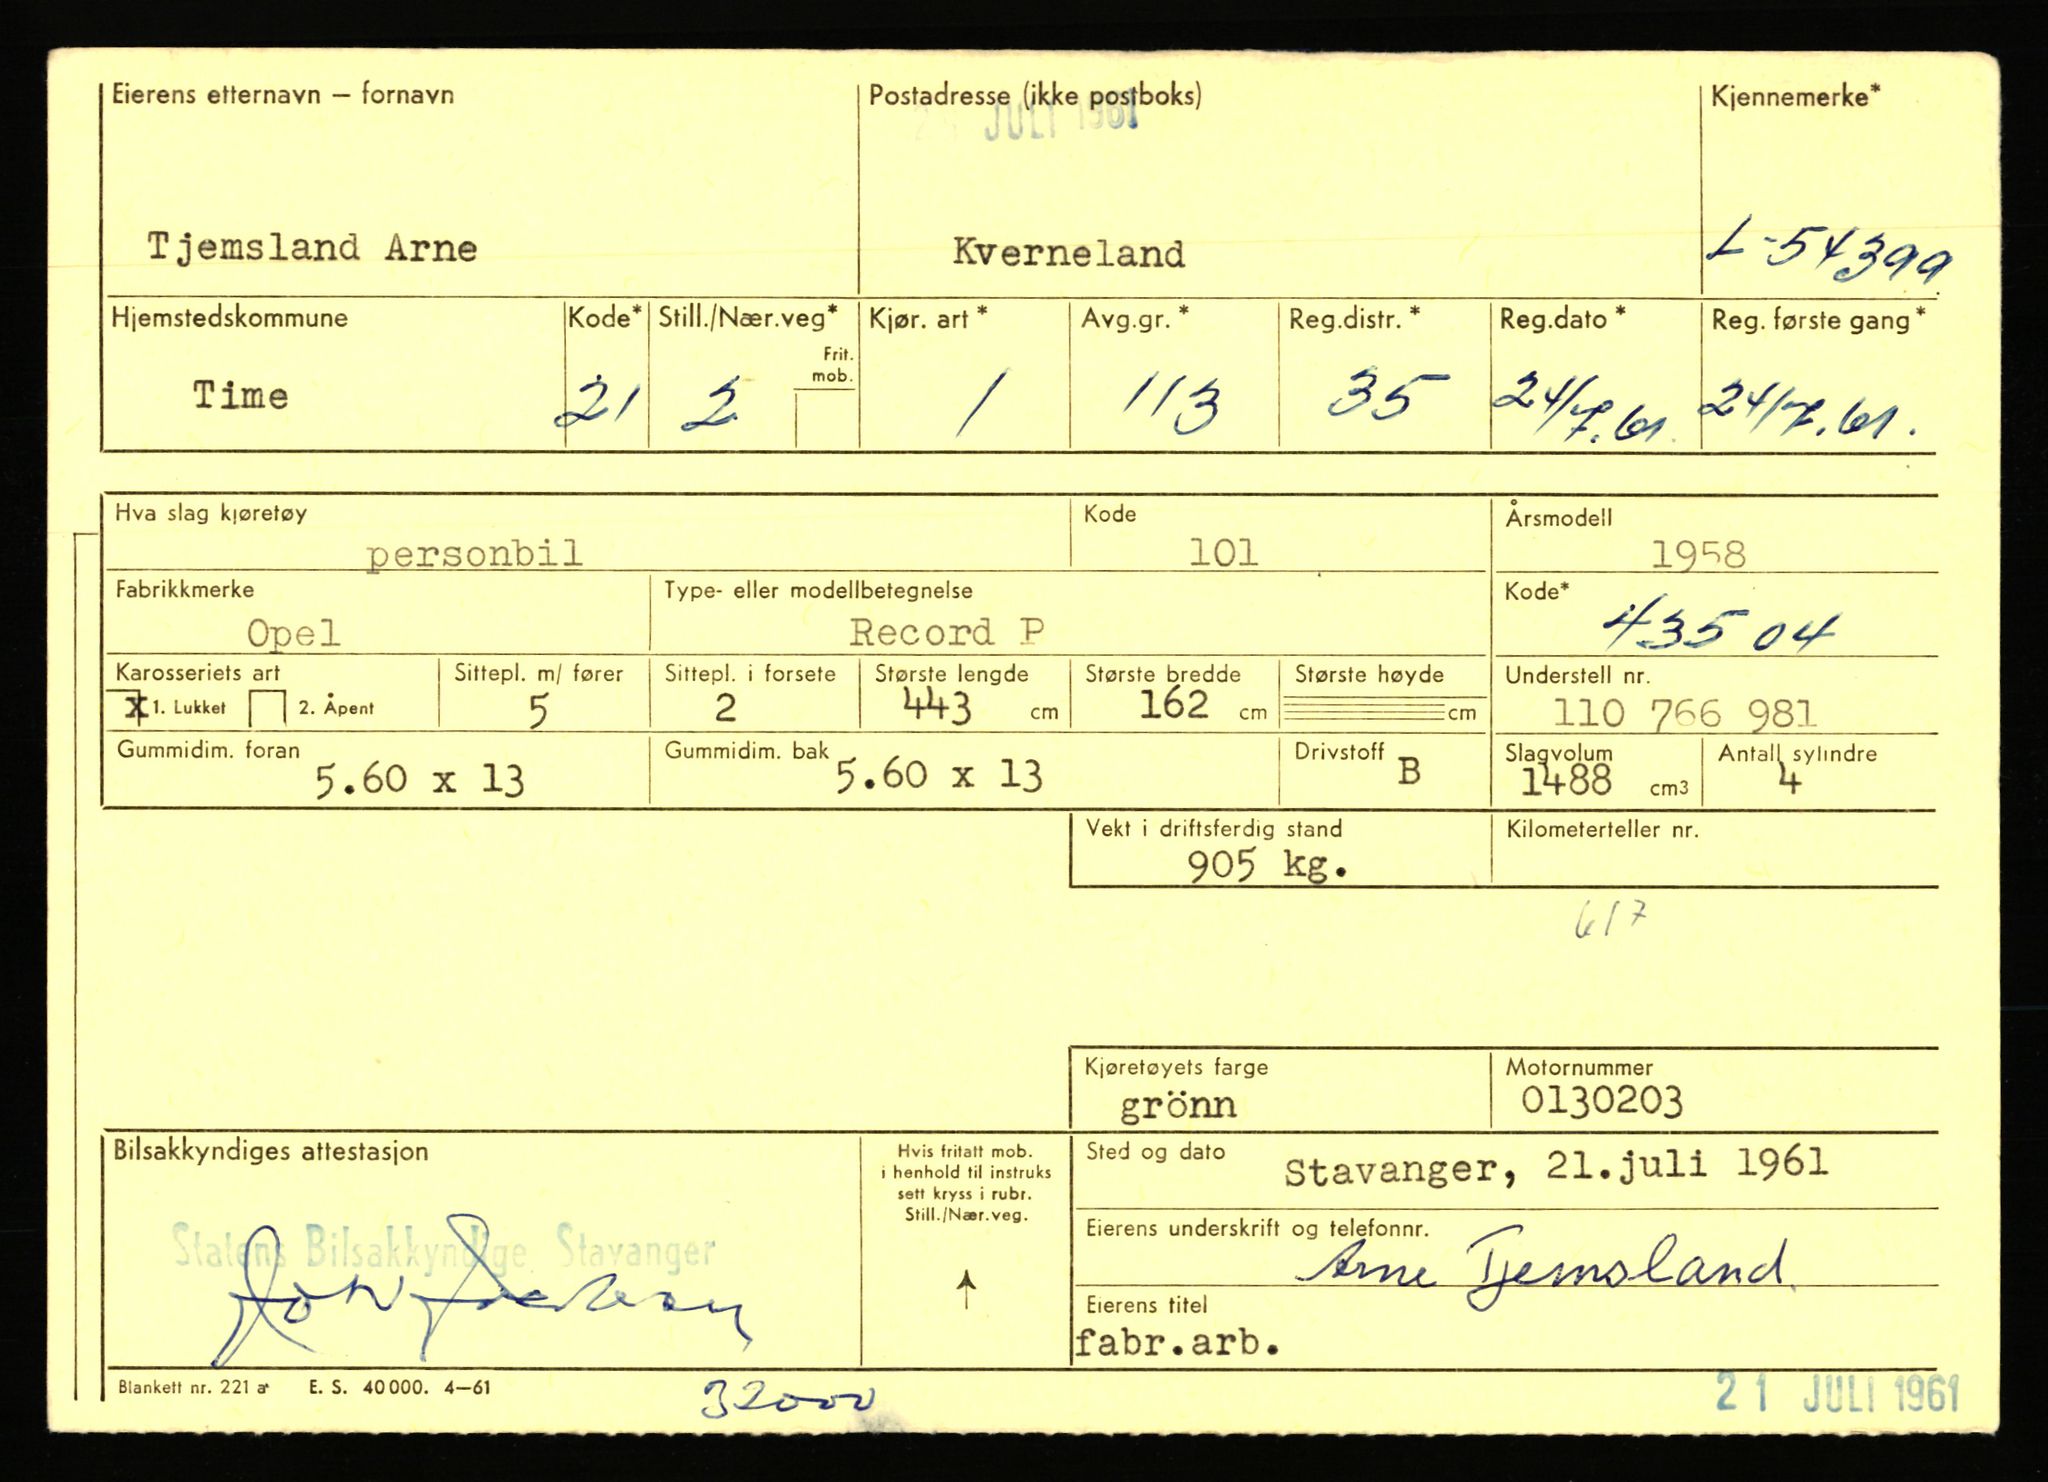 Eierens etternavn — fornavn Postadresse (ikke postboks) Kjennemerke*
JULI 1961
Tjemsland Arne Kverneland L-54399
Hjemstedskommune Kode* Still./Nær.veg* Kjør. art * Avg.gr. * Reg.distr. * Reg.dato * Reg. første gang *
Frit.
mob.
Time 21 2 1 113 35 24/7.61. 24/7.61.
Hva slag kjøretøy Kode Årsmodell
personbil 101 1958
Fabrikkmerke Type- eller modellbetegnelse Kode*
Opel Record P 435 04
Karosseriets art Sittepl. m/ fører Sittepl. i forsete Største lengde Største bredde Største høyde Understell nr.
x 1. Lukket 2. Åpent 5 2 443 cm 162 cm cm 110 766 981
Gummidim. foran Gummidim. bak Drivstoff Slagvolum Antall sylindre
5.60 x 13 5.60 x 13 B 1488 cm3 4
Vekt i driftsferdig stand Kilometerteller nr.
905 kg.
617
Kjøretøyets farge Motornummer
grönn 0130203
Bilsakkyndiges attestasjon Hvis fritatt mob. Sted og dato
i henhold til instruks Stavanger, 21.juli 1961
sett kryss i rubr.
Still./Nær.veg.
Eierens underskrift og telefonnr.
Statens Bilsakkyndige Stavanger
Arne Tjemsland.
Eierens titel
fabr.arb.
Blankett nr. 221 a E. S. 40 000. 4—61 32000 21 JULI 1961